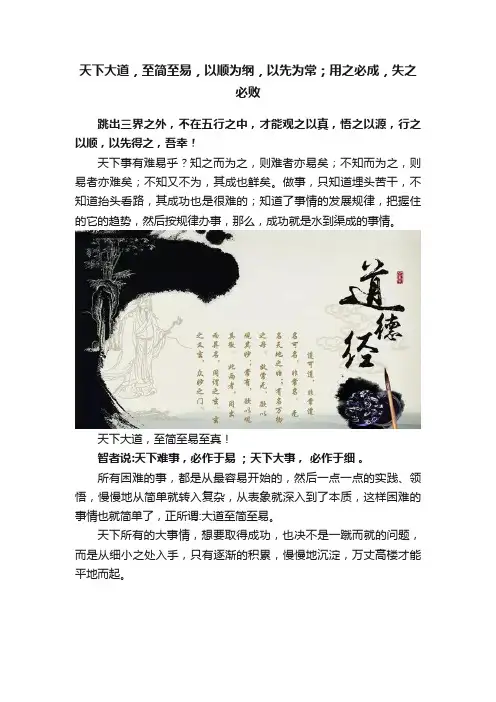 天下大道，至简至易，以顺为纲，以先为常；用之必成，失之
必败
跳出三界之外，不在五行之中，才能观之以真，悟之以源，行之
以顺，以先得之，吾幸！
天下事有难易乎？知之而为之，则难者亦易矣；不知而为之，则
易者亦难矣；不知又不为，其成也鲜矣。做事，只知道埋头苦干，不
知道抬头看路，其成功也是很难的；知道了事情的发展规律，把握住
的它的趋势，然后按规律办事，那么，成功就是水到渠成的事情。
道德经
道可道，非常道
名可名，非常名。无
名天地之始；有名万物
之母。故常无，欲以
观其妙；常有，欲以观
其徼。此两者，同出
而异名，同谓之玄。玄
之又玄，众妙之门。
天下大道，至简至易至真！
智者说:天下难事，必作于易 ；天下大事， 必作于细 。
所有困难的事，都是从最容易开始的，然后一点一点的实践、领
悟，慢慢地从简单就转入复杂，从表象就深入到了本质，这样困难的
事情也就简单了，正所谓:大道至简至易。
天下所有的大事情，想要取得成功，也决不是一蹴而就的问题，
而是从细小之处入手，只有逐渐的积累，慢慢地沉淀，万丈高楼才能
平地而起。